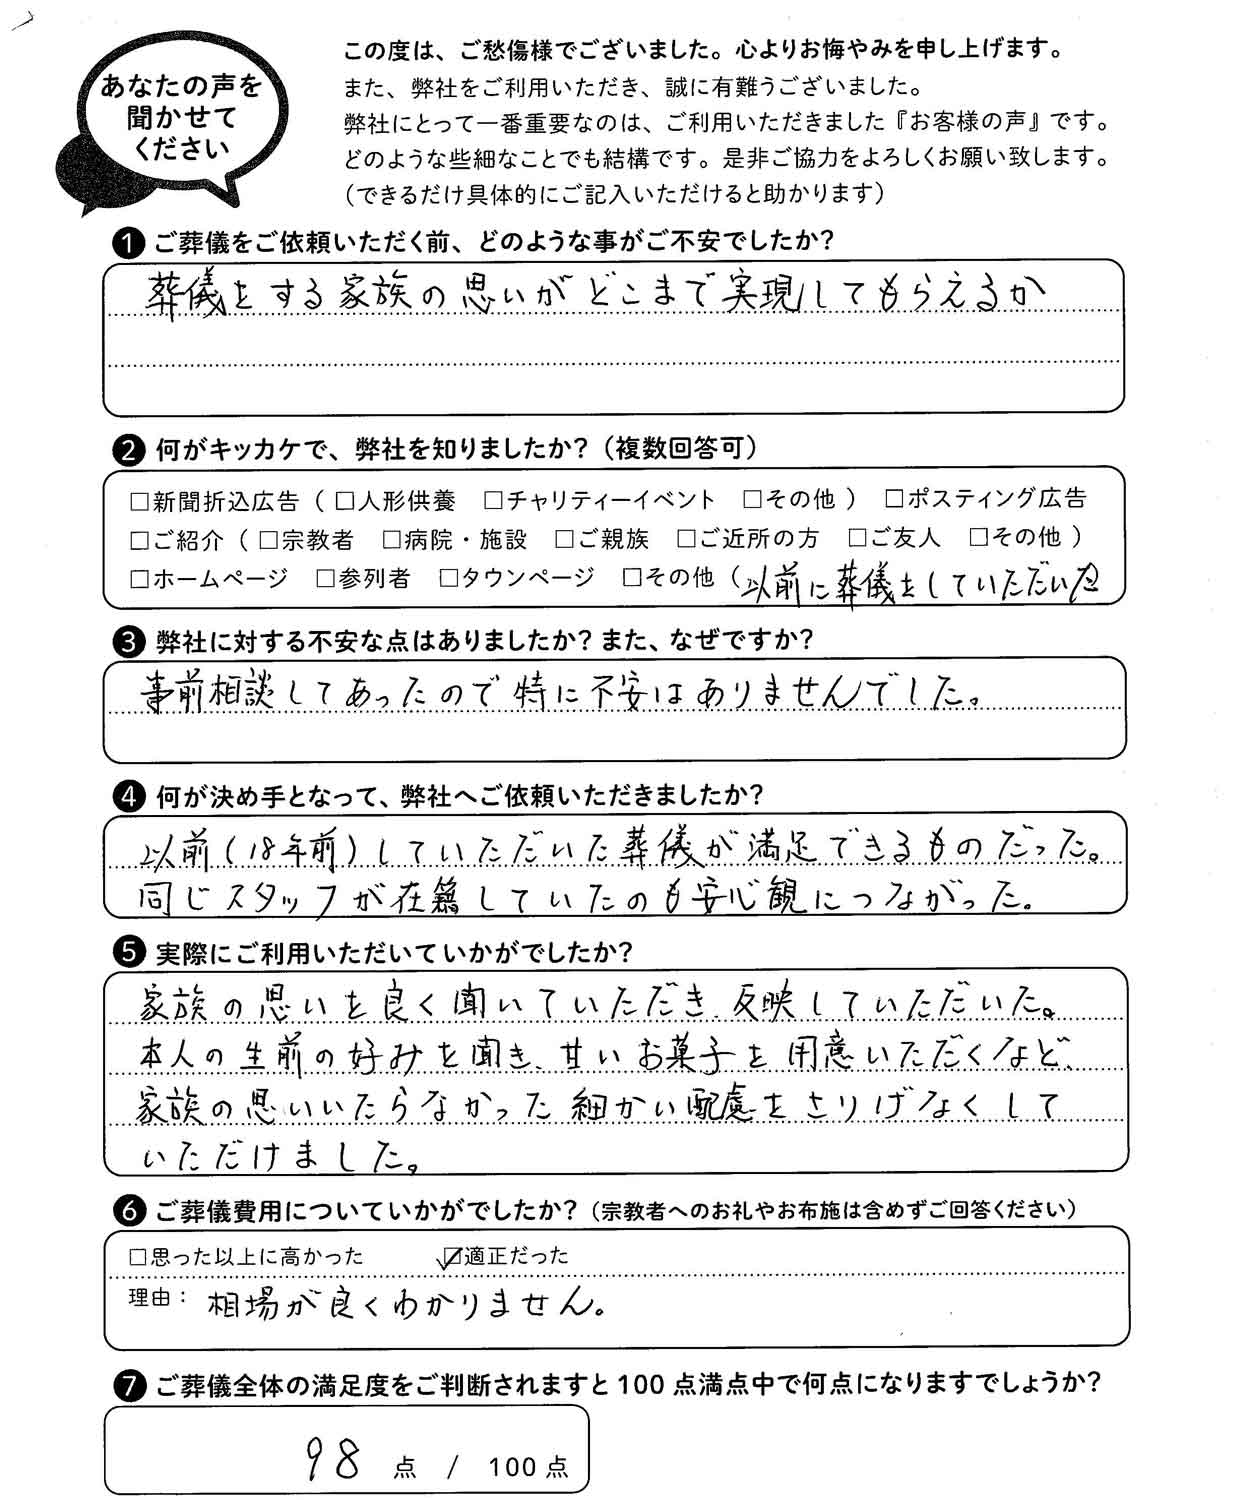 あなたの声を
聞かせて
ください
この度は、ご愁傷様でございました。心よりお悔やみを申し上げます。
また、弊社をご利用いただき、誠に有難うございました。
弊社にとって一番重要なのは、ご利用いただきました『お客様の声』です。
どのような些細なことでも結構です。是非ご協力をよろしくお願い致します。
（できるだけ具体的にご記入いただけると助かります）
❶ ご葬儀をご依頼いただく前、どのような事がご不安でしたか？
葬儀をする家族の思いがどこまで実現してもらえるか
❷ 何がキッカケで、弊社を知りましたか？（複数回答可）
□新聞折込広告（□人形供養 □チャリティーイベント □その他） □ポスティング広告
□ご紹介（□宗教者 □病院・施設 □ご親族 □ご近所の方 □ご友人 □その他）
□ホームページ □参列者 □タウンページ □その他（以前に葬儀をしていただいた
❸ 弊社に対する不安な点はありましたか？また、なぜですか？
事前相談してあったので特に不安はありませんでした。
❹ 何が決め手となって、弊社へご依頼いただきましたか？
以前（18年前）していただいた葬儀が満足できるものだった。
同じスタッフが在籍していたのも安心観につながった。
❺ 実際にご利用いただいていかがでしたか？
家族の思いを良く聞いていただき、反映していただいた。
本人の生前の好みを聞き、甘いお菓子を用意いただくなど、
家族の思いいたらなかった細かい配慮をさりげなくして
いただけました。
❻ ご葬儀費用についていかがでしたか？（宗教者へのお礼やお布施は含めずご回答ください）
□思った以上に高かった ☑適正だった
理由： 相場が良くわかりません。
❼ ご葬儀全体の満足度をご判断されますと100点満点中で何点になりますでしょうか？
98 点 / 100点